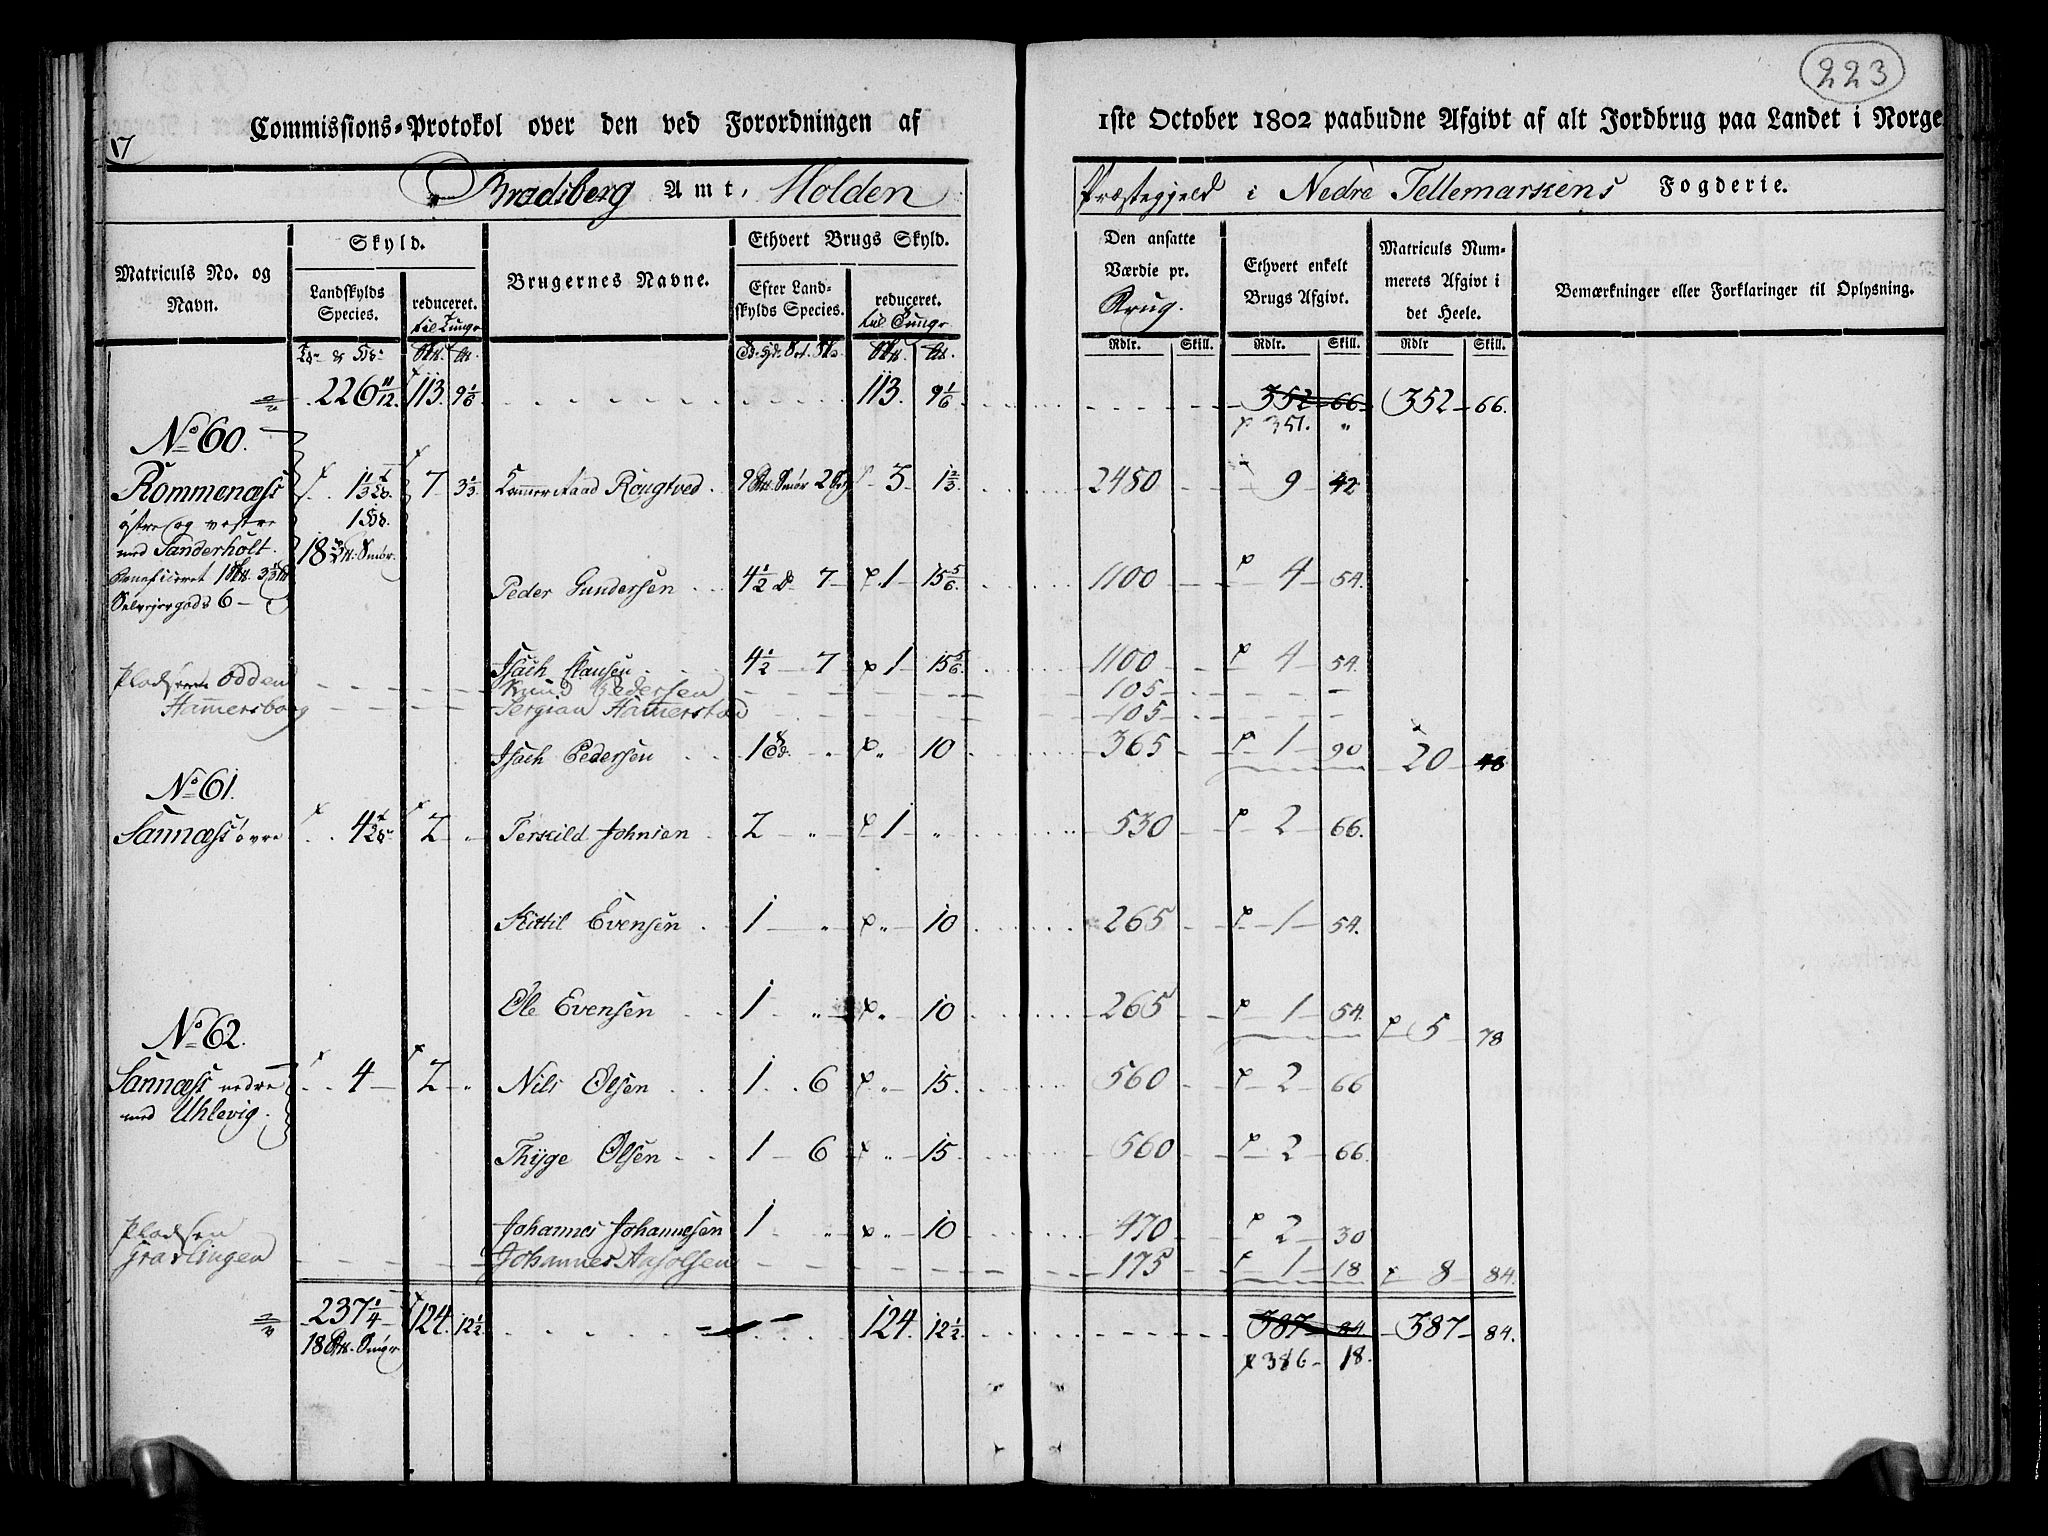 223
Commissions-Protokol over den ved Forordningen af 1ste October 1802 paabudne Afgivt af alt Jordbrug paa Landet i Norge
17
Bradsberg Amt, Holden Præstegjeld i Nedre Tellemarkens Fogderie.
Matriculs No. og Navn.
Skyld.
Landskylds Species.
reduceret. til Tunge
Brugernes Navne.
Ethvert Brugs Skyld.
Efter Landskylds Species.
reduceret. til Tunge
Den ansatte Værdie pr. Brug.
Ethvert enkelt Brugs Afgivt.
Matriculs Nummerets Afgivt i det Heele.
Bemærkninger eller Forklaringer til Oplysning.
Rdlr. Skill. Rdlr. Skill. Rdlr Skill.
226 11/12 113. 9 1/6 113. 9 1/6 352 66 352 66.
351. "
No 60.
Rommenæss 1 1/3 7 3 1/3 Cammerraad Rougtved 3 1 2/3 2450 9 42
østre og vestre
med Sanderholt. 18 Smør
Beneficeret
Selveiergods 6
Peder Gundersen 4 1/2 7 1 15 5/6 1100 4 54.
Isach Clausen 4 1/2 7 1 15 5/6 1100 4 54.
Pladsene Odden Knud Pedersen 105
Hamersborg Jergian Hamerstad 105
Isach Pedersen 1 " " 10 365 1 90 20 48
No 61.
Sannæss øvre 4 2 " Terkild Johnsen 2 " 1 " 530 2 66.
Kittil Evensen 1 " " 10 265 1 54.
Ole Evensen 1 " " 10 265 1 54. 5 78
No 62.
Sannæss nedre 4 2 " Nils Olsen 1 6 " 15. 560 2 66
med Uhlevig.
Thyge Olsen 1 6 " 15 560 2 66.
Johannes Johannesen 1 " " 10 470 2 30
Pladsen
Graslingen Johannes 175 1 18 8 84.
237 1/4 124. 12 1/2 124. 12 1/2 387 84 387 84.
18 Smør 386 18.